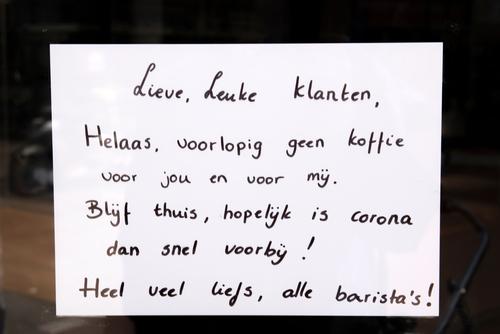 Lieve, Leuke klanten,
Helaas, voorlopig geen koffie
voor jou en voor mij.
Blijf thuis, hopelijk is corona
dan snel voorbij!
Heel veel liefs, alle barista's!